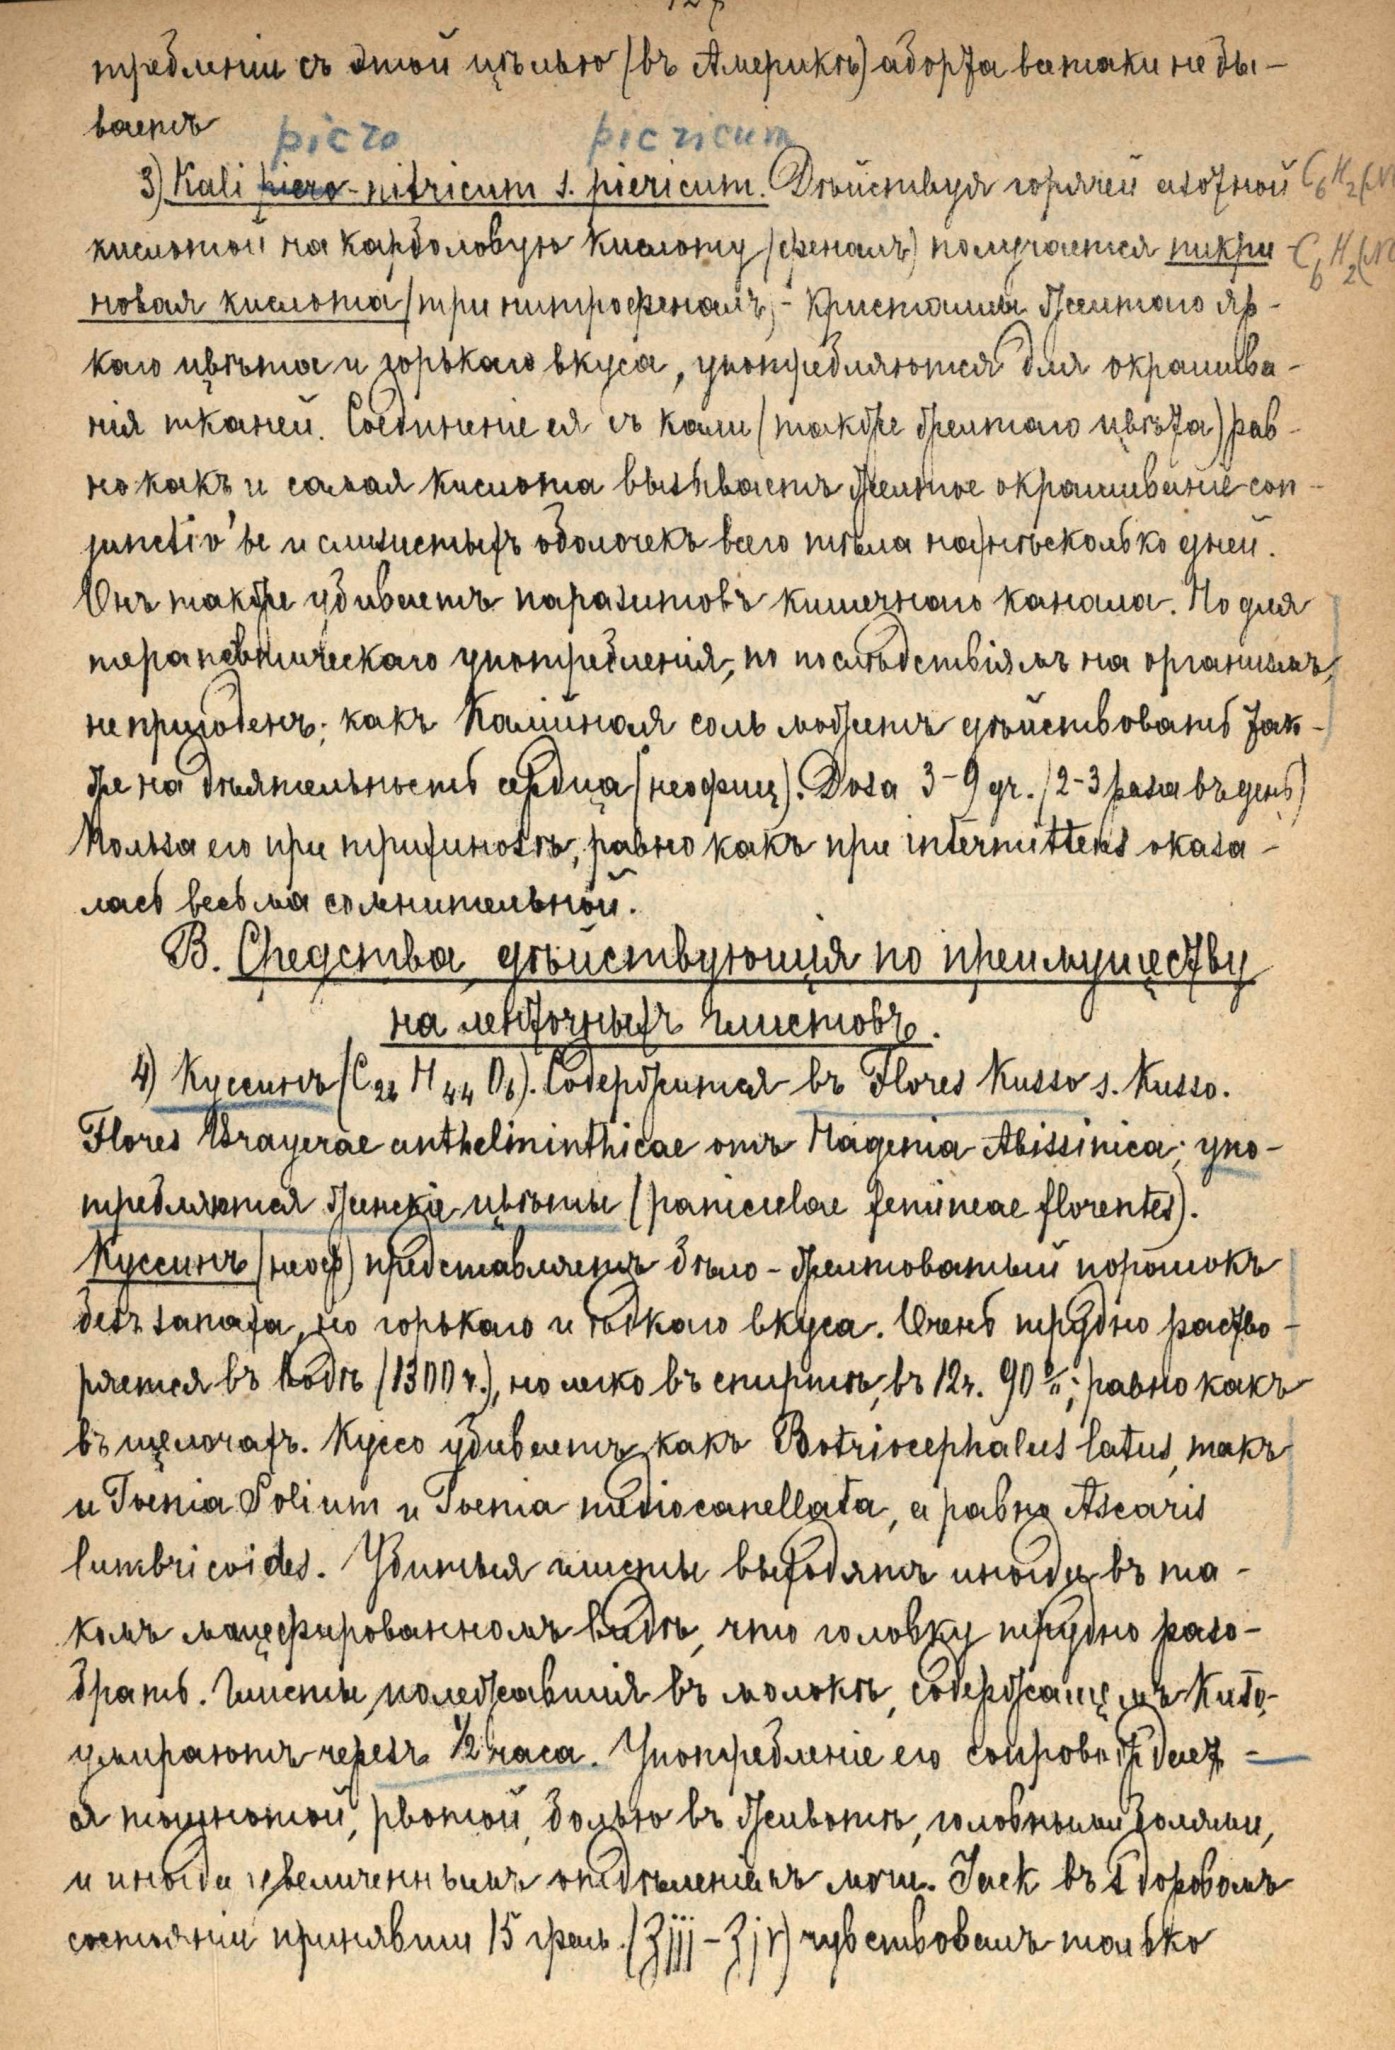 127
треблении съ этой цѣлью (въ Америкѣ) аборта всетаки не бы-
ваетъ
picro picricum
3) Kali picro-nitricum s. picricum. Дѣйствуя горячей азотной C6H2(N
кислотой на карболовую кислоту (феналъ) получается пикри- C6H2(N
новая кислота (тринитрофеналъ) - Кристаллы желтаго яр-
каго цвѣта и горькаго вкуса, употребляются для окрашива-
нія тканей. Соединеніе ея съ кали (также желтаго цвѣта) рав-
но какъ и самая кислота вызываетъ желтое окрашиваніе con-
junctiv'ы и слизистыхъ оболочекъ всего тѣла на нѣсколько дней.
Онъ также убиваетъ паразитовъ кишечнаго канала. Но для
терапевтическаго употребленія, по послѣдствіямъ на организмъ,
не пригоденъ; какъ Калійная соль можетъ дѣйствовать так-
же на дѣятельность сердца (неофиц). Doza 3-9 gr. (2-3 раза въ день)
Польза его при трихинозѣ, равно какъ при intermittens оказа-
лась весьма сомнительной.
B. Средства дѣйствующія по преимуществу
на ленточныхъ глистовъ.
4) Куссинъ (C26 H44 O6). Содержится въ Flores Kusso s. Kusso.
Flores Brayerae anthelminthicae отъ Hagenia Abissinica; упо-
требляются женскіе цвѣты (paniculae femineae florentes).
Куссинъ (неоф) представляетъ бѣло-желтоватый порошокъ
безъ запаха, но горькаго и ѣдкаго вкуса. Очень трудно раство-
ряется въ водѣ (1300 ч.), но легко въ спиртѣ, въ 12 ч. 90%; равно какъ
въ щелочахъ. Куссо убиваетъ какъ Botriocephalus latus, такъ
и Toenia Solium и Toenia mediocanellata, а равно Ascaris
lumbricoides. Убитыя глисты выходятъ иногда въ та-
комъ мацерированномъ видѣ, что головку трудно разо-
брать. Глисты, полежавшія въ молокѣ, содержащемъ
умираютъ черезъ 1/2 часа. Употребленіе его сопровождает-
ся тошнотой, рвотой, болью въ животѣ, головными болями,
и иногда увеличеннымъ отдѣленіемъ мочи. Jack въ здоровомъ
состояніи принявши 15 грам. (ʒiij-ʒiv) чувствовалъ только